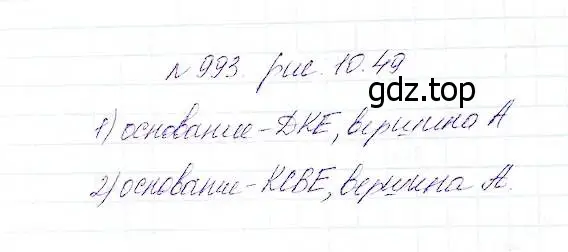 № 993. рис. 10.49
gdz.top
1) основание - ДКЕ, вершина А
2) основание - КСВЕ, вершина А.